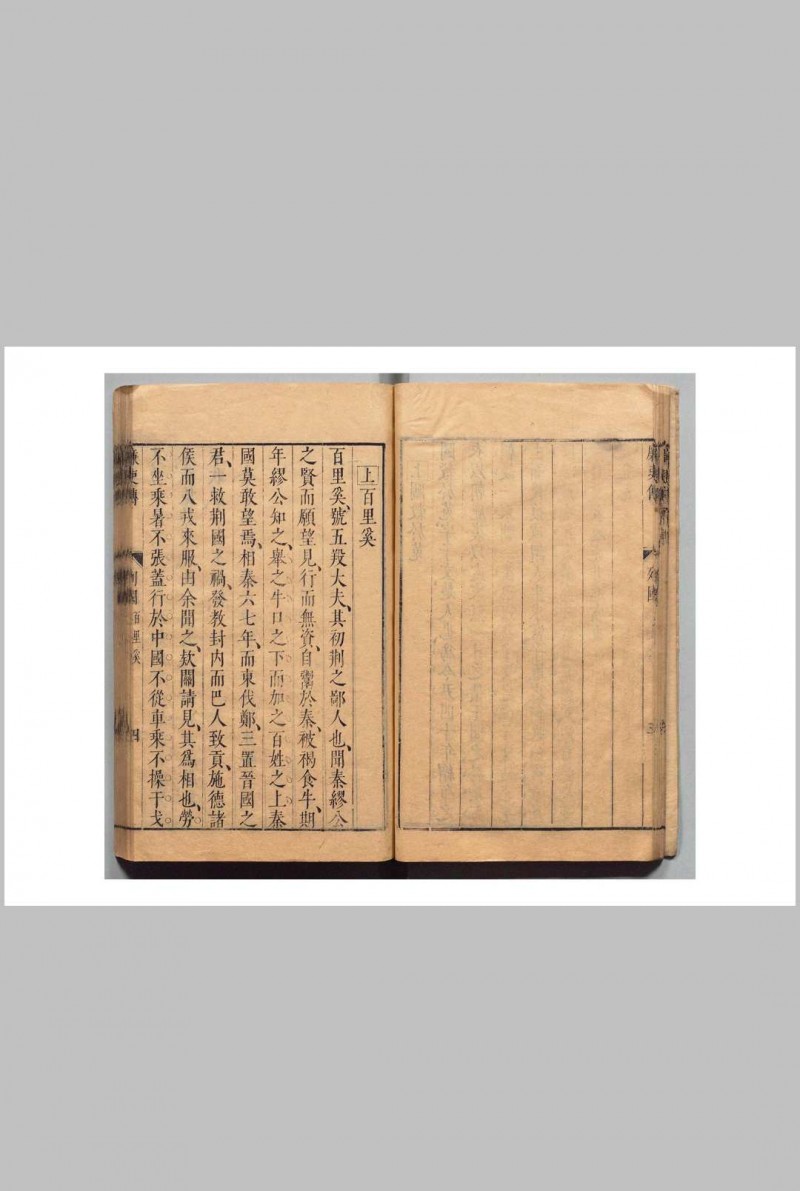 上 百里奚
百里奚號五羖大夫其初荆之鄙人也聞秦繆公
之賢而願望見行而無資自鬻於秦被褐食牛期
年繆公知之舉之牛口之下而加之百姓之上秦
國莫敢望焉相秦六七年而東伐鄭三置晉國之
君一救荆國之禍發教封内而巴人致貢施德諸
侯而八戎來服由余聞之欵關請見其爲相也勞
不坐乘暑不張蓋行於中國不從車乘不操干戈
列國 百里奚 四
列國